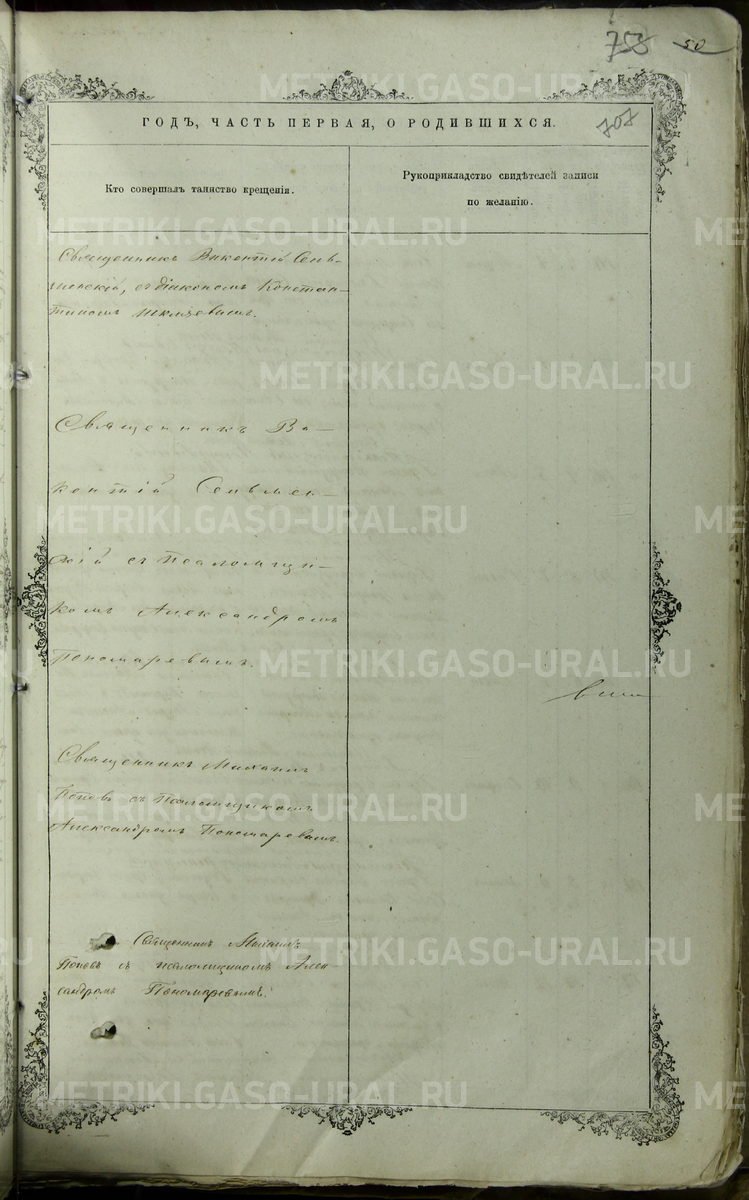 753 50
707
ГОДЪ, ЧАСТЬ ПЕРВАЯ, О РОДИВШИХСЯ.
Кто совершалъ таинство крещенія.
Рукоприкладство свидѣтелей записи
по желанію.
Священникъ Викентій Сель-
менскій, съ діакономъ Констан-
тиномъ Шкляевымъ.
Священникъ Ви-
кентій Сельмен-
скій съ Псаломщи-
комъ Александромъ
Пономаревымъ.
Священникъ Михаилъ
Поповъ съ Псаломщикомъ
Александромъ Пономаревымъ.
Священникъ Михаилъ
Поповъ съ псаломщикомъ Алек-
сандромъ Пономаревымъ.
METRIKI.GASO-URAL.RU